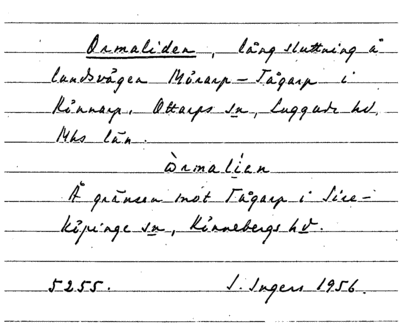 Ormaliden, lång sluttning å
landsvägen Mörarp – Tågarp i
Kinnarp. Ottarps sn, Luggude hd,
Mhs län.
òrmalíen
Å gränsen mot Tågarp i Sire-
köpinge sn, Rönnebergs hd.
5255. I. Ingers 1956.